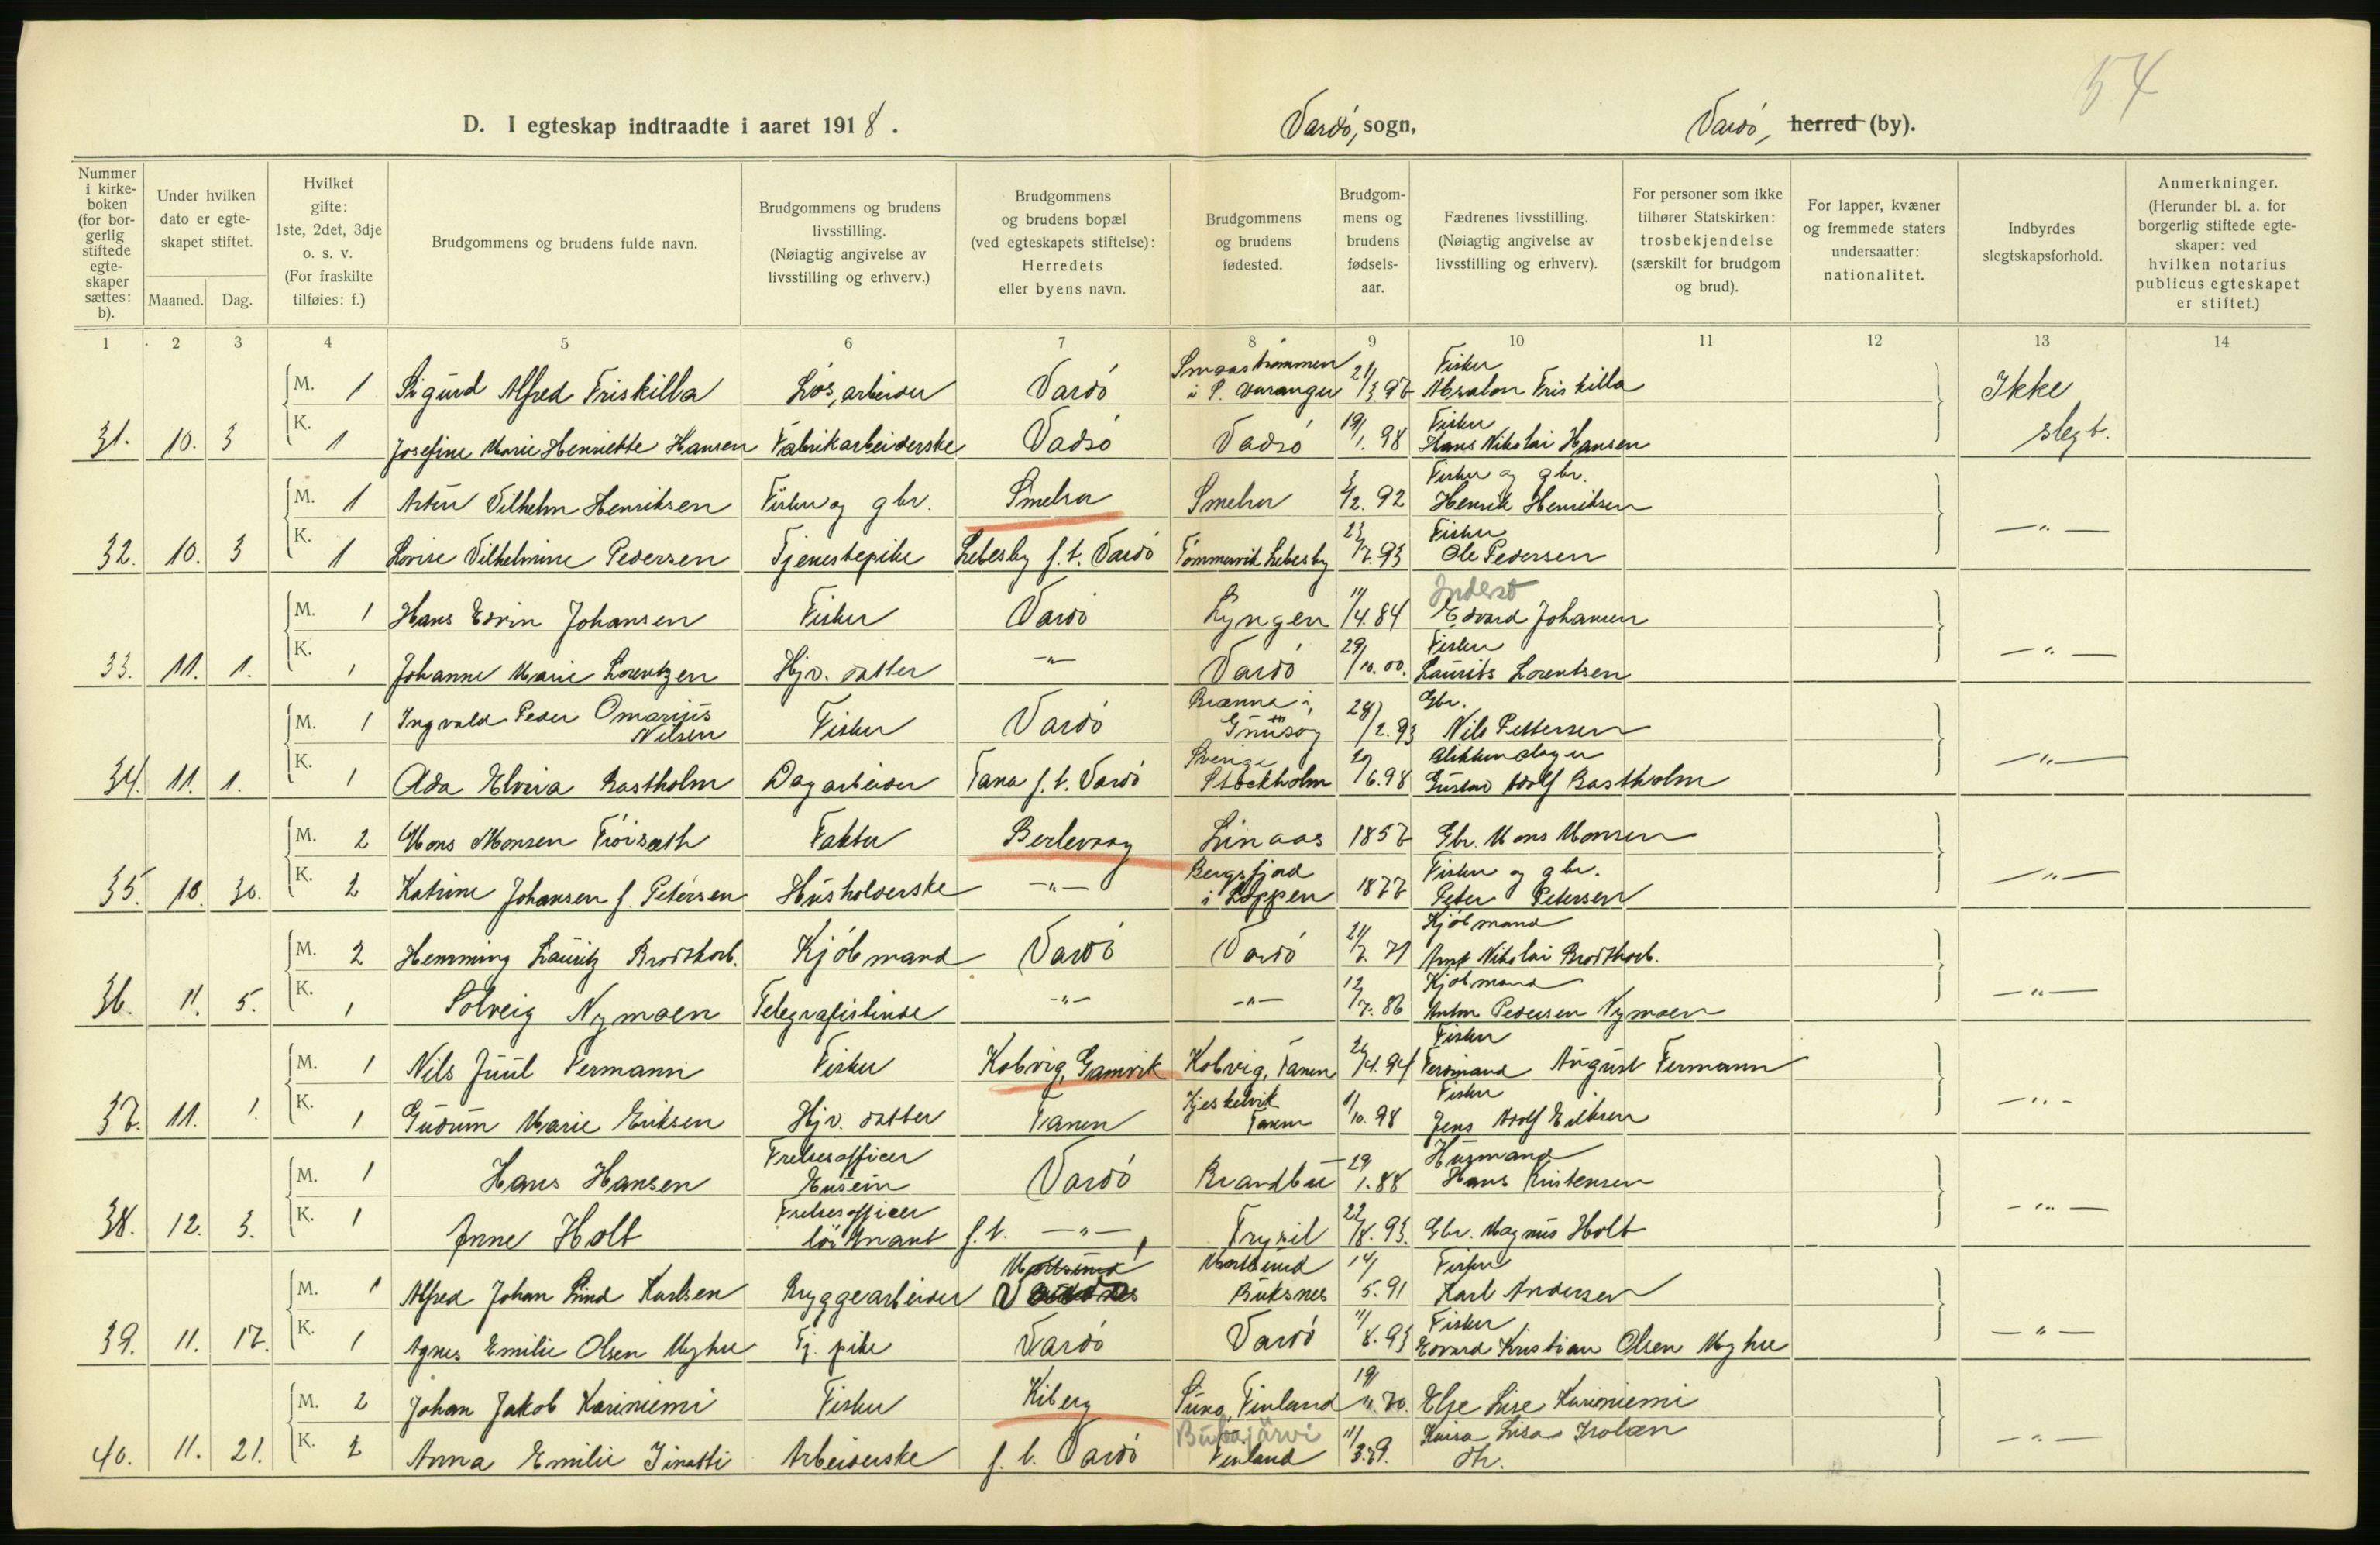 54
D. I egteskap indtraadte i aaret 1918. Vardö, sogn, Vardö, herred (by).
Nummer i kirkeboken (for borgerlig stiftede egteskaper sættes: b).
Under hvilken dato er egteskapet stiftet.
Maaned. Dag.
Hvilket gifte: 1ste, 2det, 3dje o. s. v. (For fraskilte tilføies: f.)
Brudgommens og brudens fulde navn.
Brudgommens og brudens livsstilling. (Nøiagtig angivelse av livsstilling og erhverv.)
Brudgommens og brudens bopæl (ved egteskapets stiftelse): Herredets eller byens navn.
Brudgommens og brudens fødested.
Brudgommens og brudens fødselsaar.
Fædrenes livsstilling. (Nøiagtig angivelse av livsstilling og erhverv).
For personer som ikke tilhører Statskirken: trosbekjendelse (særskilt for brudgom og brud).
For lapper, kvæner og fremmede staters undersaatter: nationalitet.
Indbyrdes slegtskapsforhold.
Anmerkninger. (Herunder bl. a. for borgerlig stiftede egteskaper: ved hvilken notarius publicus egteskapet er stiftet.)
1 2 3 4 5 6 7 8 9 10 11 12 13 14
M. 1 Sigurd Alfred Friskilla Løs, arbeider Vardö Smaastrømmen i S. Varanger 21/3.97 Fisker Absalon Friskilla Ikke
31. 10. 3 K. 1 Josefine Marie Henriette Hansen Fabrikarbeiderske Vadsö Vadsö 19/1.98 Fisker Hans Nikolai Hansen slegt.
M. 1 Artur Vilhelm Henriksen Fisker og gbr. Smelror Smelror 2.92 Fisker og gbr. Henrik Henriksen
32. 10. 3 K. 1 Lovise Vilhelmine Pedersen Tjenestepike Lebesby f.t. Vardö Tømmervik Lebesby 23/7.93 Fisker Ole Pedersen —"—
M. 1 Hans Edvin Johansen Fisker Vardö Lyngen 11/4.84 Inderst Edvard Johansen
33. 11. 1. K. 1 Johanne Marie Lorentzen Hjv. datter —"— Vardö 29/10.00. Fisker Laurits Lorentsen —"—
M. 1 Ingvald Peder Omarius Nilsen Fisker Vardö Brænna i Gimsøy 28/2.93 Gbr. Nils Pettersen
34. 11. 1. K. 1 Ada Elvira Bastholm Dagarbeider Tana f.t. Vardö Sverige Stockholm 6.98 Blikkenslager Gustav Adolf Bastholm —"—
M. 2 Mons Monsen Frøisæth Faktor Berlevaag Linaas 1857 Gbr. Mons Monsen
35. 10. 30. K. 2 Katrine Johansen f. Petersen Husholderske —"— Bergsfjord i Loppen 1877 Fisker og gbr. Peter Petersen —"—
M. 2 Hemming Lauritz Brodtkorb. Kjöbmand Vardö Vardö 21/7.71 Kjöbmand Nikolai Brodtkorb.
36. 11. 5. K. 1 Solveig Nymoen Telegrafistinde —"— —"— 12/7.86 Kjöbmand Anton Pedersen Nymoen —"—
M. 1 Nils Juul Fermann Fisker Kobvig, Gamvik Kobvig, Tanen 4.94 Fisker Ferdinand August Fermann
37. 11. 1. K. 1 Gudrun Marie Eriksen Hjv. datter Tanen Kjeskelvik Tanen 10.98 Fisker Jens Adolf Eriksen —"—
M. 1 Hans Hansen Frelsesofficer Vardö Brandbu 29/1.88 Husmand Hans Kristensen
38. 12. 3. K. 1 Anne Holt Frelsesofficer löitnant f.t. —"— Trysil 22/8.93. Gbr. Magnus Holt —"—
M. 1 Alfred Johan Lind Karlsen Bryggearbeider Mortsund Mortsund Buksnes 14/5.91 Fisker Karl Andersen
39. 11. 17. K. 1 Agnes Emilie Olsen Myhre Tj. pike Vardö Vardö 11/8.93 Fisker Edvard Kristian Olsen Myhre —"—
M. 2 Johan Jakob Kariniemi Fisker Kiberg Simo, Finland 19/11.70. Else Lise Kariniemi
40. 11. 21. K. 2 Anna Emilie Arbeiderske f.t. Vardö Finland 11/3.79. Kaisa Lisa dtr. —"—